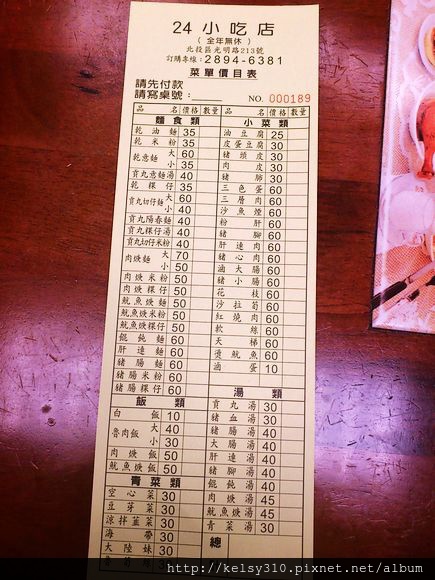 24 小吃店
( 全年無休 )
北投區光明路213號
訂購專線：2894-6381
菜單價目表
請先付款
請寫桌號： NO. 000189
品名 價格 數量
麵食類
乾油麵 35
乾米粉 35
乾意麵 大 60
小 35
貢丸意麵湯 40
乾粿仔 35
貢丸切仔麵 大 60
小 40
貢丸陽春麵 40
貢丸粿仔湯 40
貢丸切仔米粉 40
肉焿麵 大 70
小 50
肉焿米粉 50
肉焿粿仔 50
魷魚焿麵 50
魷魚焿米粉 50
魷魚焿粿仔 50
餛飩麵 60
肝連麵 60
豬腸麵 60
豬腸米粉 60
豬腸粿仔 60
飯類
白飯 10
魯肉飯 大 40
小 30
肉焿飯 50
魷魚飯 50
青菜類
空心菜 30
豆芽菜 30
涼拌韮菜 30
海帶 30
大陸妹 30
30
品名 價格 數量
小菜類
油豆腐 25
皮蛋豆腐 30
豬頭皮 30
豬皮 30
豬肺 30
三色蛋 60
三層肉 60
沙魚煙 60
粉肝 60
豬腳 60
肝連肉 60
豬心肉 60
滷大腸 60
豬小腸 60
花枝 60
沙拉筍 60
紅燒肉 60
軟絲 60
天梯 60
燙魷魚 60
滷蛋 10
湯類
貢丸湯 30
豬血湯 30
豬腸湯 40
大腸湯 40
肝連湯 40
豬腳湯 40
餛飩湯 40
肉焿湯 45
魷魚焿湯 45
青菜湯 30
總
http://kelsy310.pixnet.net/album